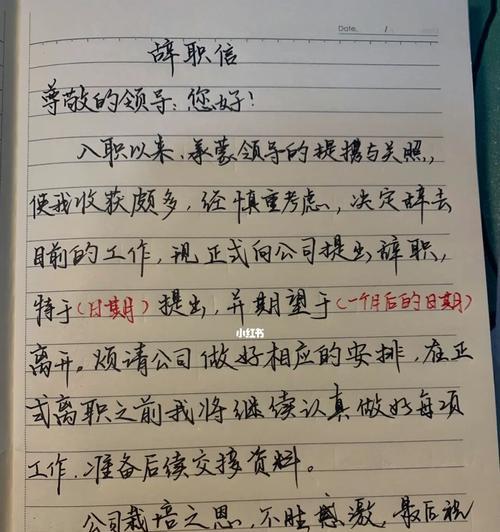 Date. /
辞职信
尊敬的领导：您好！
入职以来，承蒙领导的提携与关照，
使我收获颇多，经慎重考虑，决定辞去
目前的工作，现正式向公司提出辞职，
特于（日期）提出，并期望于（一个月后的日期）
小红书
离开。烦请公司做好相应的安排，在正
式离职之前我将继续认真做好每项
工作，准备后续交接资料。
公司栽培之恩，不胜感激，最后祝